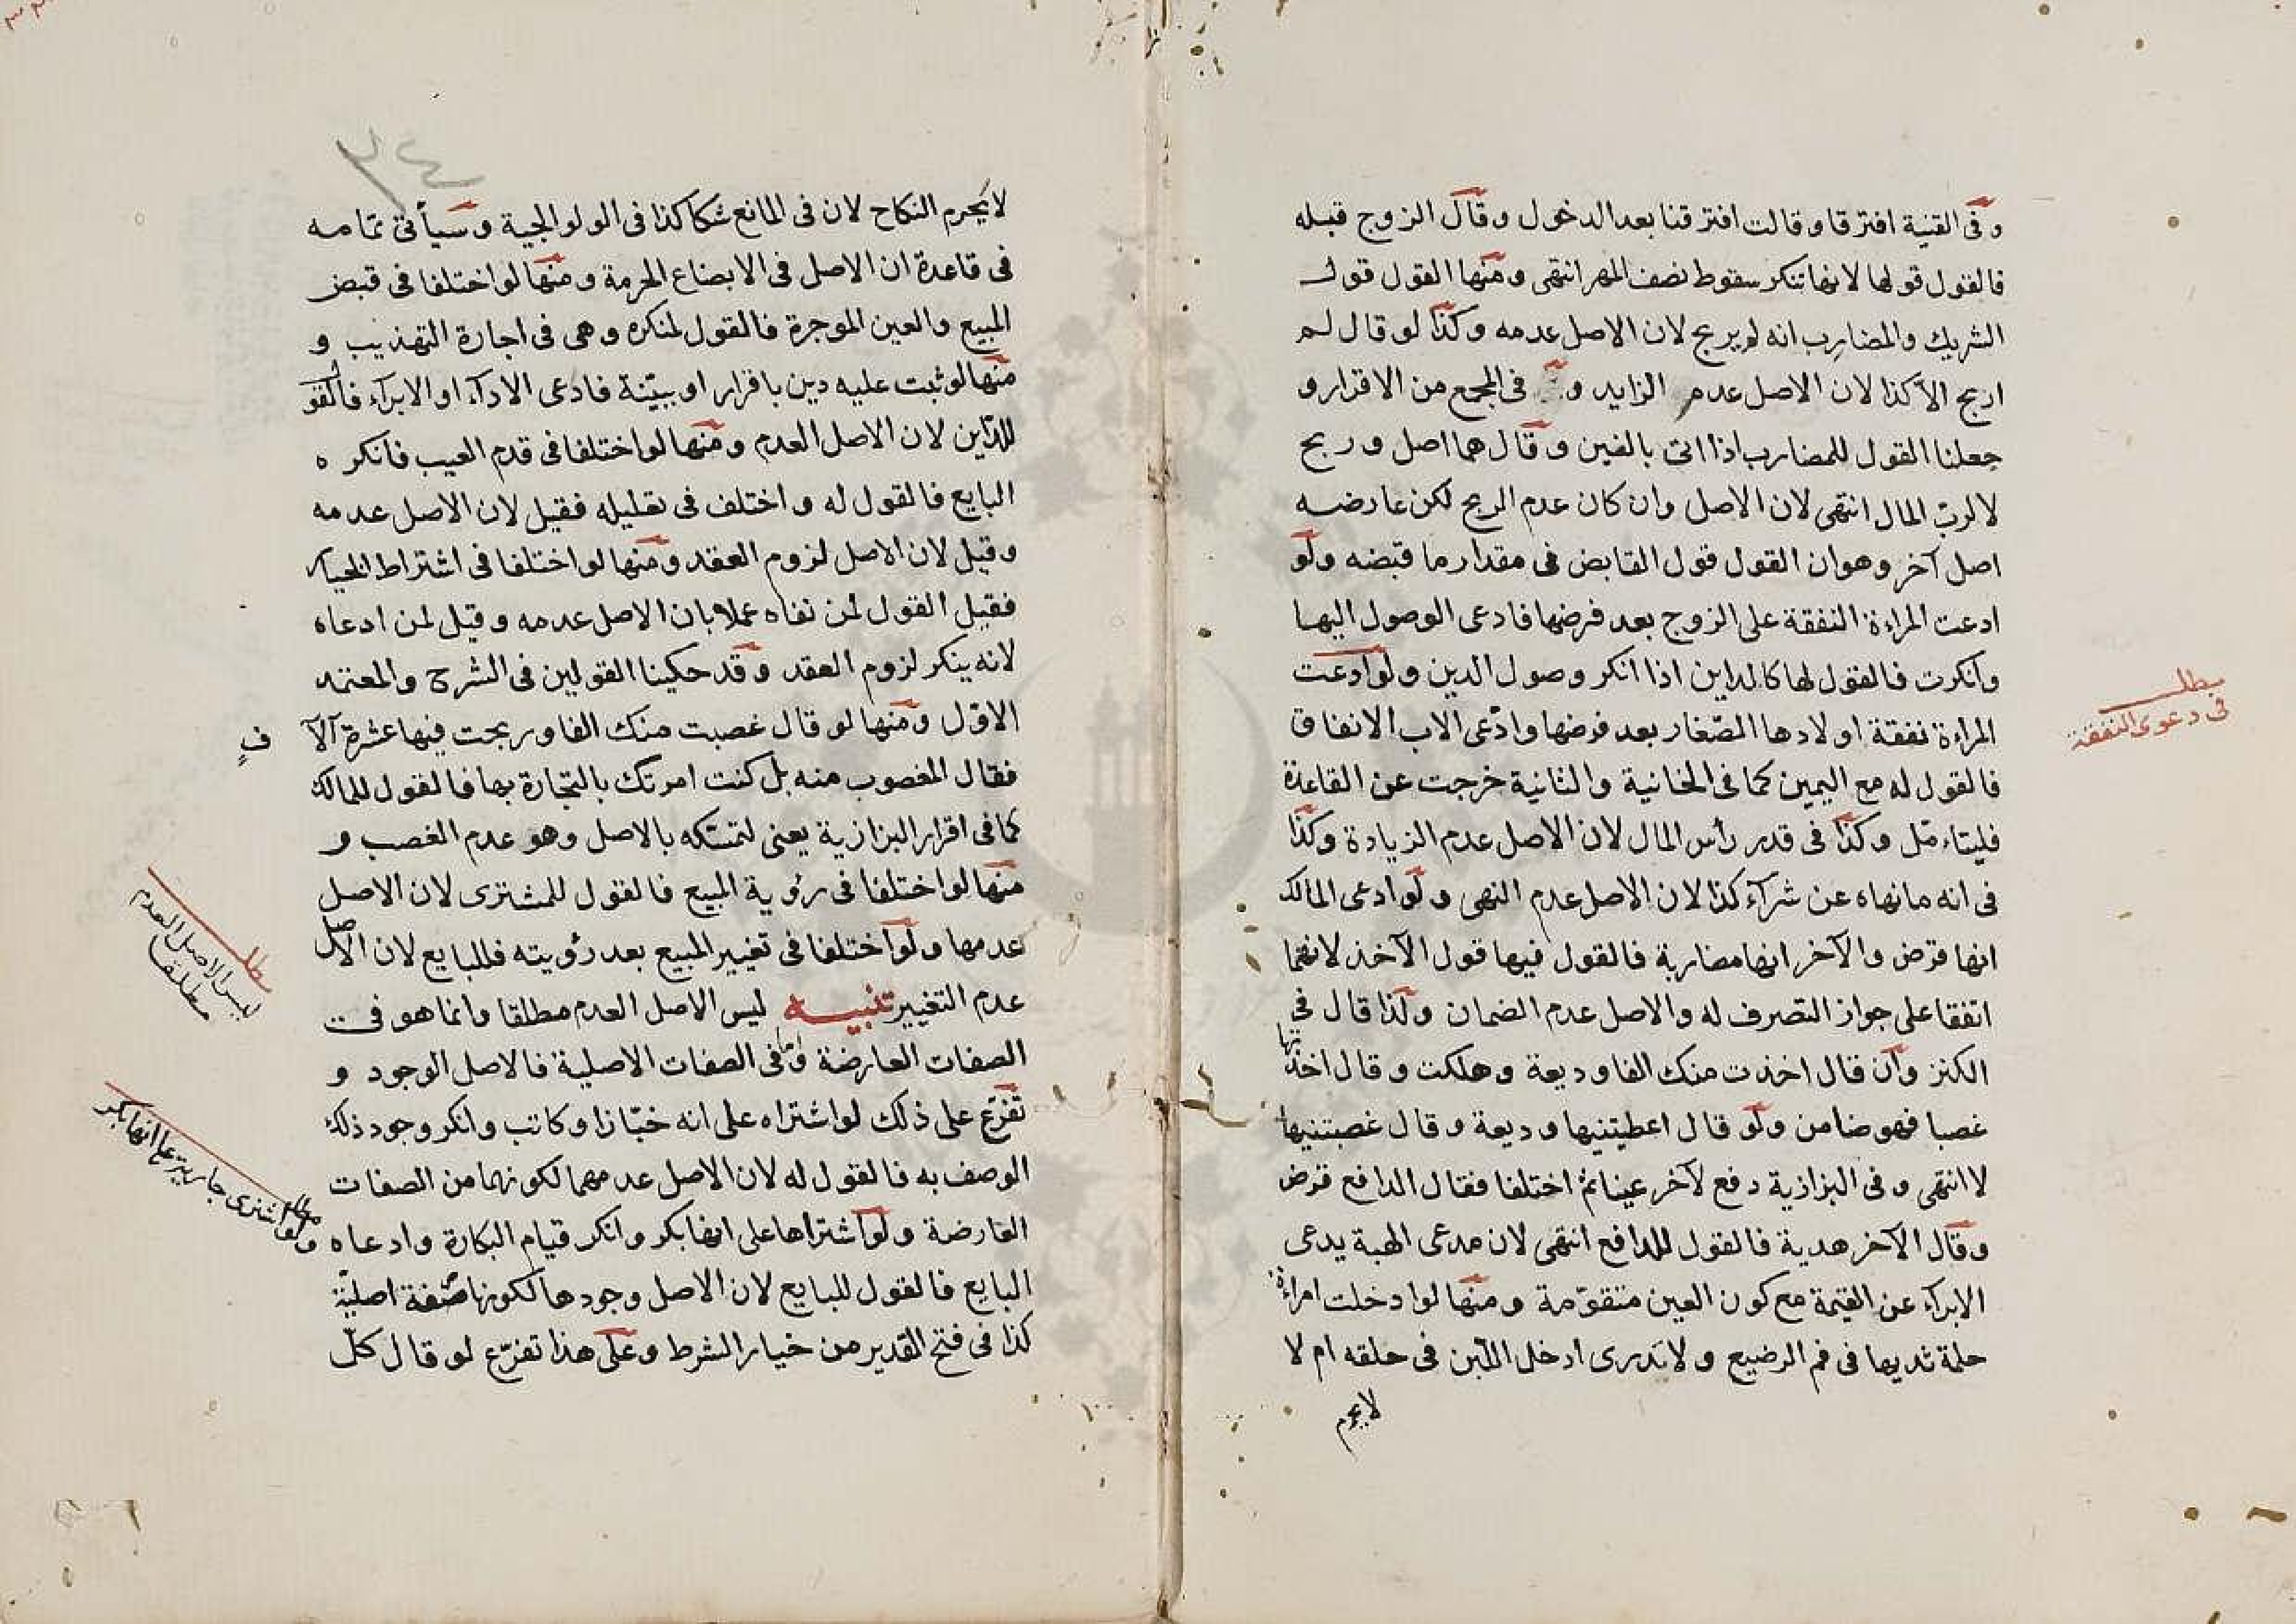 وفى القنية افترقا وقالت افترقنا بعد الدخول وقال الزوج قبله
فالقول قولها لانها تنكر سقوط نصف المهر انتهى ومنها القول قول
الشريك والمضارب انه لم يربح لان الاصل عدمه وكذا لو قال لم
اربح الا كذا لان الاصل عدم الزايد و فى المجمع من الاقرار و
جعلنا القول للمضارب اذا اتى بالفين وقال هما اصل وربح
لا لرب المال انتهى لان الاصل وان كان عدم الربح لكن عارضه
اصل آخر وهو ان القول قول القابض فى مقدار ما قبضه ولو
ادعت المراءة النفقة على الزوج بعد فرضها فادعى الوصول اليها
وانكرت فالقول لها كالداين اذا انكر وصول الدين ولو ادعت
المراءة نفقة اولادها الصّغار بعد فرضها وادّعى الاب الانفاق
فالقول له مع اليمين كما فى الخانية والثانية خرجت عن القاعدة
فليتاءمّل وكذا فى قدر رأس المال لان الاصل عدم الزيادة وكذا
فى انه ما نهاه عن شرآء كذا لان الاصل عدم النهى ولو ادعى المالك
انها قرض والآخر انها مضاربة فالقول فيها قول الآخذ لانهما
اتفقا على جواز التصرف له والاصل عدم الضمان ولذا قال فى
الكنز وان قال اخذت منك الفا وديعة وهلكت وقال اخذتها
غصبا فهو ضامن ولو قال اعطيتنيها وديعة وقال غصبتنيها
لا انتهى وفى البزازية دفع لآخر عينا ثم اختلفا فقال الدافع قرض
وقال الآخر هدية فالقول للدافع انتهى لان مدعى الهبة يدعى
الابراء عن القيمة مع كون العين متقوّمة ومنها لو ادخلت امراءة
حلمة ثديها فى فم الرضيع ولا يدرى ادخل اللّبن فى حلقه ام لا
لا يحرم
مطلب
فى دعوى النفقة
لا يحرم النكاح لان فى المانع شكا كذا فى الولوالجية وسيأتى تمامه
فى قاعدة ان الاصل فى الابضاع الحرمة ومنها لو اختلفا فى قبض
المبيع والعين الموجرة فالقول لمنكره وهى فى اجارة التهذيب و
منها لو ثبت عليه دين باقرار او ببيّنة فادعى الادآء او الابراء فالقول
للدّاين لان الاصل العدم ومنها لو اختلفا فى قدم العيب فانكره
البايع فالقول له واختلف فى تعليله فقيل لان الاصل عدمه
وقيل لان الاصل لزوم العقد ومنها لو اختلفا فى اشتراط الخيار
فقيل القول لمن نفاه عملا بان الاصل عدمه وقيل لمن ادعاه
لانه ينكر لزوم العقد وقد حكينا القولين فى الشرح والمعتمد
الاوّل ومنها لو قال غصبت منك الفا وربحت فيها عشرة آلاف
فقال المغصوب منه بل كنت امرتك بالتجارة بها فالقول للمالك
كما فى اقرار البزازية يعنى لتمسّكه بالاصل وهو عدم الغصب و
منها لو اختلفا فى رؤية المبيع فالقول للمشترى لان الاصل
عدمها ولو اختلفا فى تغيير المبيع بعد رؤيته فللبايع لان الاصل
عدم التغيير تنبيه ليس الاصل العدم مطلقا وانما هو فى
الصفات العارضة واما فى الصفات الاصلية فالاصل الوجود و
تفرّع على ذلك لو اشتراه على انه خبّاز او كاتب وانكر وجود ذلك
الوصف به فالقول له لان الاصل عدمهما لكونهما من الصفات
العارضة ولو اشتراها على انها بكر وانكر قيام البكارة وادعاه
البايع فالقول للبايع لان الاصل وجودها لكونها صفة اصليّة
كذا فى فتح القدير من خيار الشرط وعلى هذا تفرّع لو قال كلّ
مطلب
ليس الاصل العدم
مطلقا
مطلب
ولو اشترى جارية على انها بكر